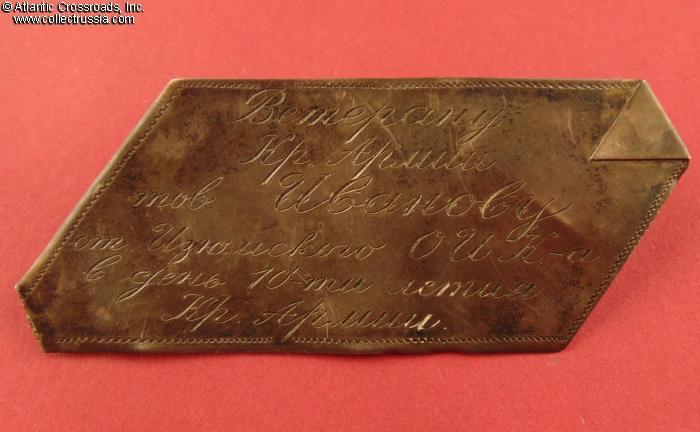 © Atlantic Crossroads, Inc.
www.collectrussia.com
Ветерану
Кр. Армии
тов Иванову
от Изюмского О И К.-а
в день 10-ти летия
Кр. Армии.